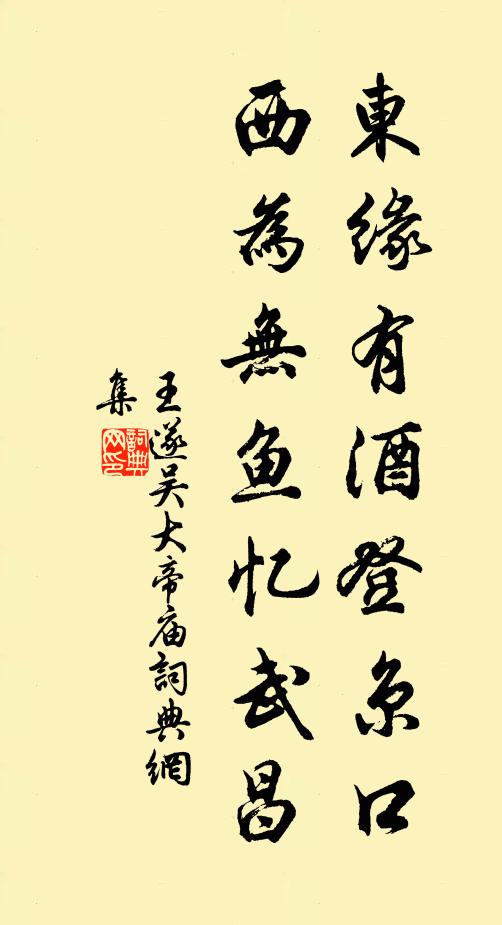 東緣有酒登京口
西為無鱼忆武昌
王遂吴大帝庙詞典網
集
詞典
网印